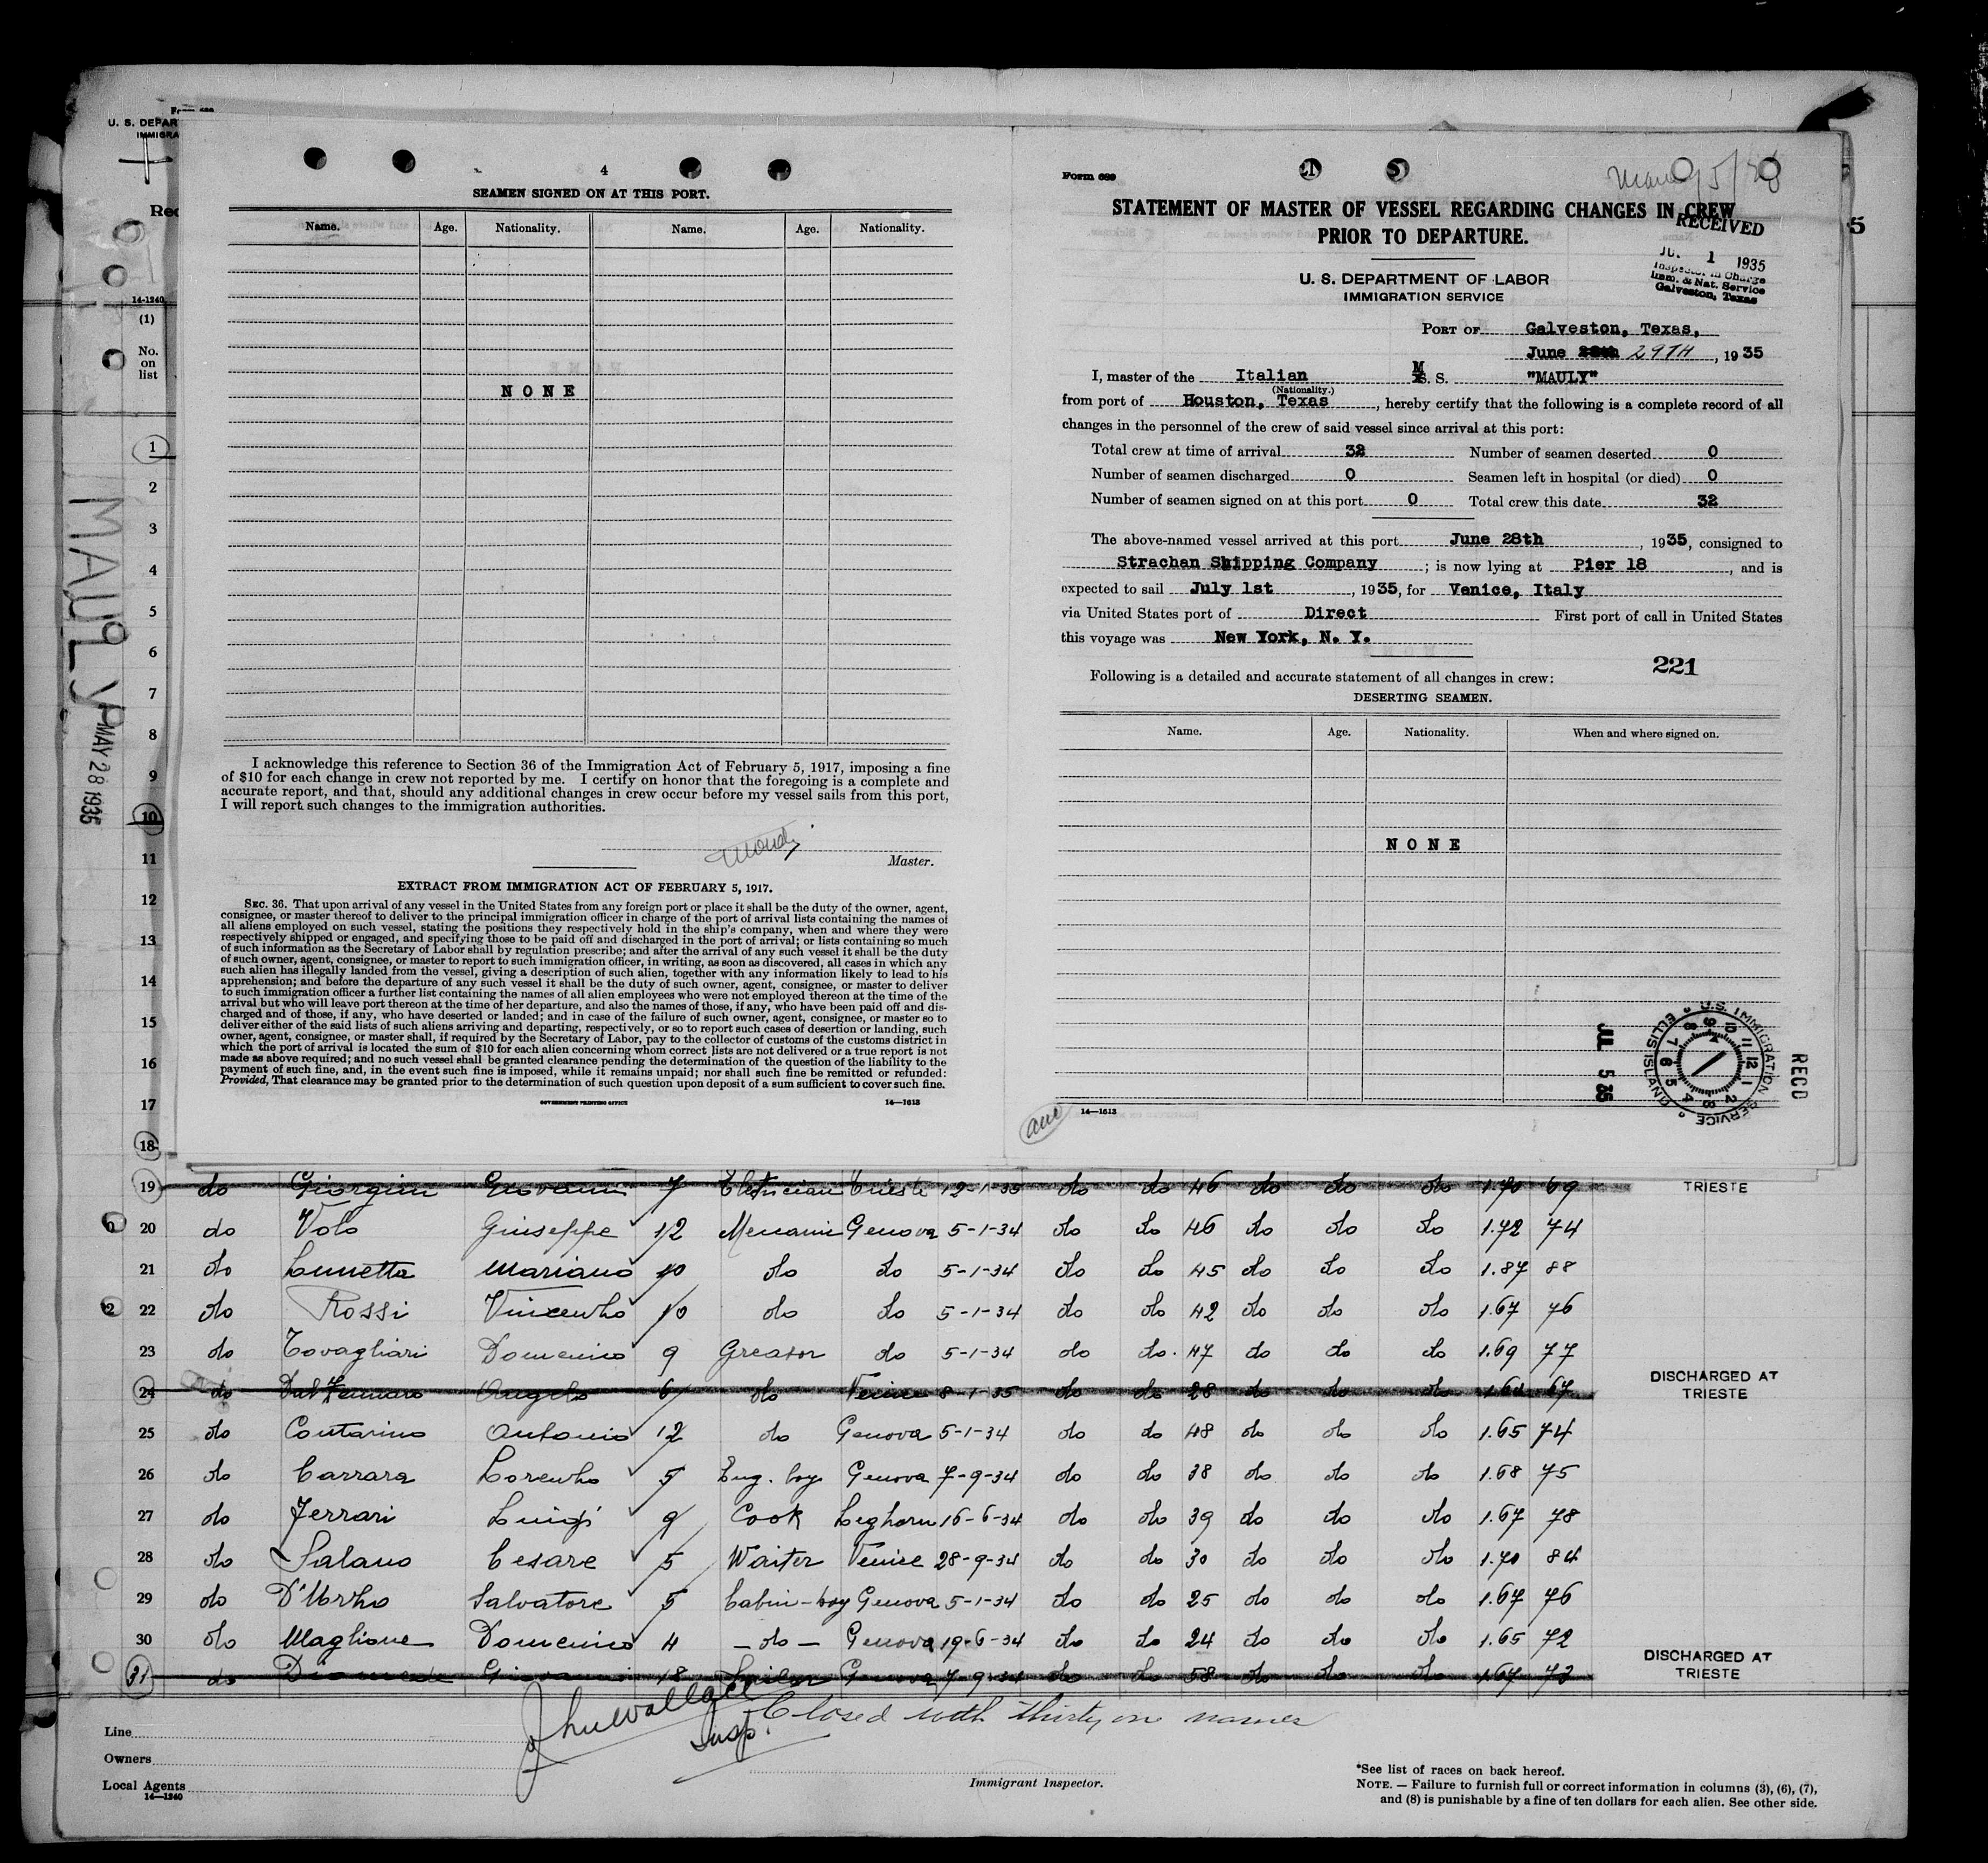 Form 689
U. S. DEPAR
IMMIGRA
Rec
14-1240
(1)
No.
on
list
1
2
3
4
5
6
7
8
9
10
11
12
13
14
15
16
17
18
MAULY
MAY 28 1935
4
SEAMEN SIGNED ON AT THIS PORT.
Name. Age. Nationality. Name. Age. Nationality.
NONE
I acknowledge this reference to Section 36 of the Immigration Act of February 5, 1917, imposing a fine
of $10 for each change in crew not reported by me. I certify on honor that the foregoing is a complete and
accurate report, and that, should any additional changes in crew occur before my vessel sails from this port,
I will report such changes to the immigration authorities.
Master.
EXTRACT FROM IMMIGRATION ACT OF FEBRUARY 5, 1917.
SEC. 36. That upon arrival of any vessel in the United States from any foreign port or place it shall be the duty of the owner, agent,
consignee, or master thereof to deliver to the principal immigration officer in charge of the port of arrival lists containing the names of
all aliens employed on such vessel, stating the positions they respectively hold in the ship's company, when and where they were
respectively shipped or engaged, and specifying those to be paid off and discharged in the port of arrival; or lists containing so much
of such information as the Secretary of Labor shall by regulation prescribe; and after the arrival of any such vessel it shall be the duty
of such owner, agent, consignee, or master to report to such immigration officer, in writing, as soon as discovered, all cases in which any
such alien has illegally landed from the vessel, giving a description of such alien, together with any information likely to lead to his
apprehension; and before the departure of any such vessel it shall be the duty of such owner, agent, consignee, or master to deliver
to such immigration officer a further list containing the names of all alien employees who were not employed thereon at the time of the
arrival but who will leave port thereon at the time of her departure, and also the names of those, if any, who have been paid off and dis-
charged and of those, if any, who have deserted or landed; and in case of the failure of such owner, agent, consignee, or master so to
deliver either of the said lists of such aliens arriving and departing, respectively, or so to report such cases of desertion or landing, such
owner, agent, consignee, or master shall, if required by the Secretary of Labor, pay to the collector of customs of the customs district in
which the port of arrival is located the sum of $10 for each alien concerning whom correct lists are not delivered or a true report is not
made as above required; and no such vessel shall be granted clearance pending the determination of the question of the liability to the
payment of such fine, and, in the event such fine is imposed, while it remains unpaid; nor shall such fine be remitted or refunded:
Provided, That clearance may be granted prior to the determination of such question upon deposit of a sum sufficient to cover such fine.
GOVERNMENT PRINTING OFFICE 14—1613
STATEMENT OF MASTER OF VESSEL REGARDING CHANGES IN CREW
PRIOR TO DEPARTURE.
RECEIVED
1 1935
Inspector in Charge
Imm. & Nat. Service
Galveston, Texas
5
U. S. DEPARTMENT OF LABOR
IMMIGRATION SERVICE
PORT OF Galveston, Texas,
June 28th 29TH, 1935
I, master of the Italian M S. S. "MAULY"
(Nationality.)
from port of Houston, Texas, hereby certify that the following is a complete record of all
changes in the personnel of the crew of said vessel since arrival at this port:
Total crew at time of arrival 32 Number of seamen deserted 0
Number of seamen discharged 0 Seamen left in hospital (or died) 0
Number of seamen signed on at this port 0 Total crew this date 32
The above-named vessel arrived at this port June 28th, 1935, consigned to
Strachan Shipping Company; is now lying at Pier 18, and is
expected to sail July 1st, 1935, for Venice, Italy
via United States port of Direct First port of call in United States
this voyage was New York, N. Y.
221
Following is a detailed and accurate statement of all changes in crew:
DESERTING SEAMEN.
Name. Age. Nationality. When and where signed on.
NONE
JUL 5 35
U.S. IMMIGRATION SERVICE ELLIS ISLAND
RECD
14—1613
19 do Giorgini Giovanni 7 Trieste 12-1-35 do do 46 do do do 1.70 69 TRIESTE
20 do Volo Giuseppe 12 Genova 5-1-34 do do 46 do do do 1.72 74
21 do Mariano 10 do do 5-1-34 do do 45 do do do 1.87 88
22 do Rossi 10 do do 5-1-34 do do 42 do do do 1.67 76
23 do Tovagliari Domenico 9 Greasor do 5-1-34 do do 47 do do do 1.69 77
24 do Angelo 6 do Venice 8-1-35 do do 28 do do do 67 DISCHARGED AT TRIESTE
25 do Contarino Antonio 12 do Genova 5-1-34 do do 48 do do do 1.65 74
26 do Carrara 5 Eng. boy Genova 7-9-34 do do 38 do do do 1.68 75
27 do Ferrari Luigi 9 Cook Leghorn 16-6-34 do do 39 do do do 1.67 78
28 do Salano Cesare 5 Waiter Venice 28-9-34 do do 30 do do do 1.70 84
29 do Salvatore 5 Cabin-boy Genova 5-1-34 do do 25 do do do 1.67 76
30 do Maglione Domenico 4 -do- Genova 19-6-34 do do 24 do do do 1.65 72
31 do Giovanni 18 Genova 7-9-34 do do 58 do do do 1.67 73 DISCHARGED AT TRIESTE
Insp. Closed with thirty one names
Line
Owners
Local Agents
14—1240
Immigrant Inspector.
*See list of races on back hereof.
NOTE. — Failure to furnish full or correct information in columns (3), (6), (7),
and (8) is punishable by a fine of ten dollars for each alien. See other side.